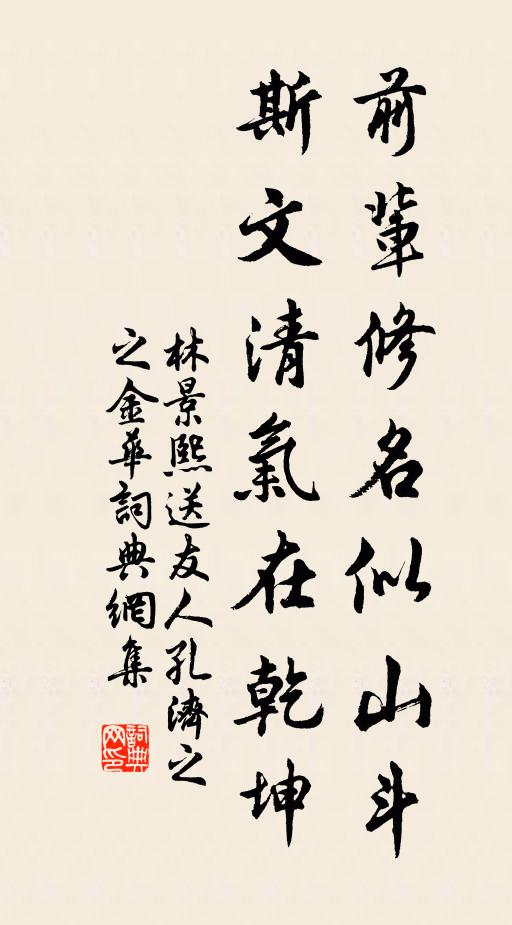 前輩修名似山斗
斯文清氣在乾坤
林景熙送友人孔濟之
之金華詞典網集
詞典
网印